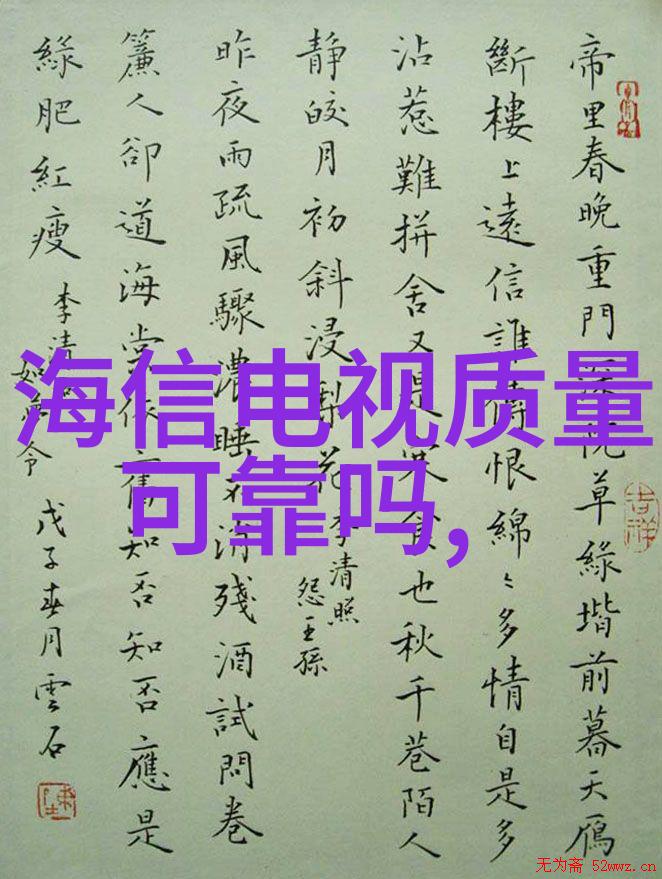 海信电视质量
可靠吗,
帝里春晚重門深院草緑堦前暮天鴈
斷樓上遠信誰傳恨綿〻多情自是多
沾惹難拼舍又是寒食也秋千巷陌人
静皎月初斜浸梨花
李清照
怨王孫
昨夜雨疏風驟濃睡不消殘酒試問卷
簾人卻道海棠依舊知否知否應是
緑肥紅瘦
李清
如夢令
戊子春月雲石
吉祥
无为斋 52wwz.cn